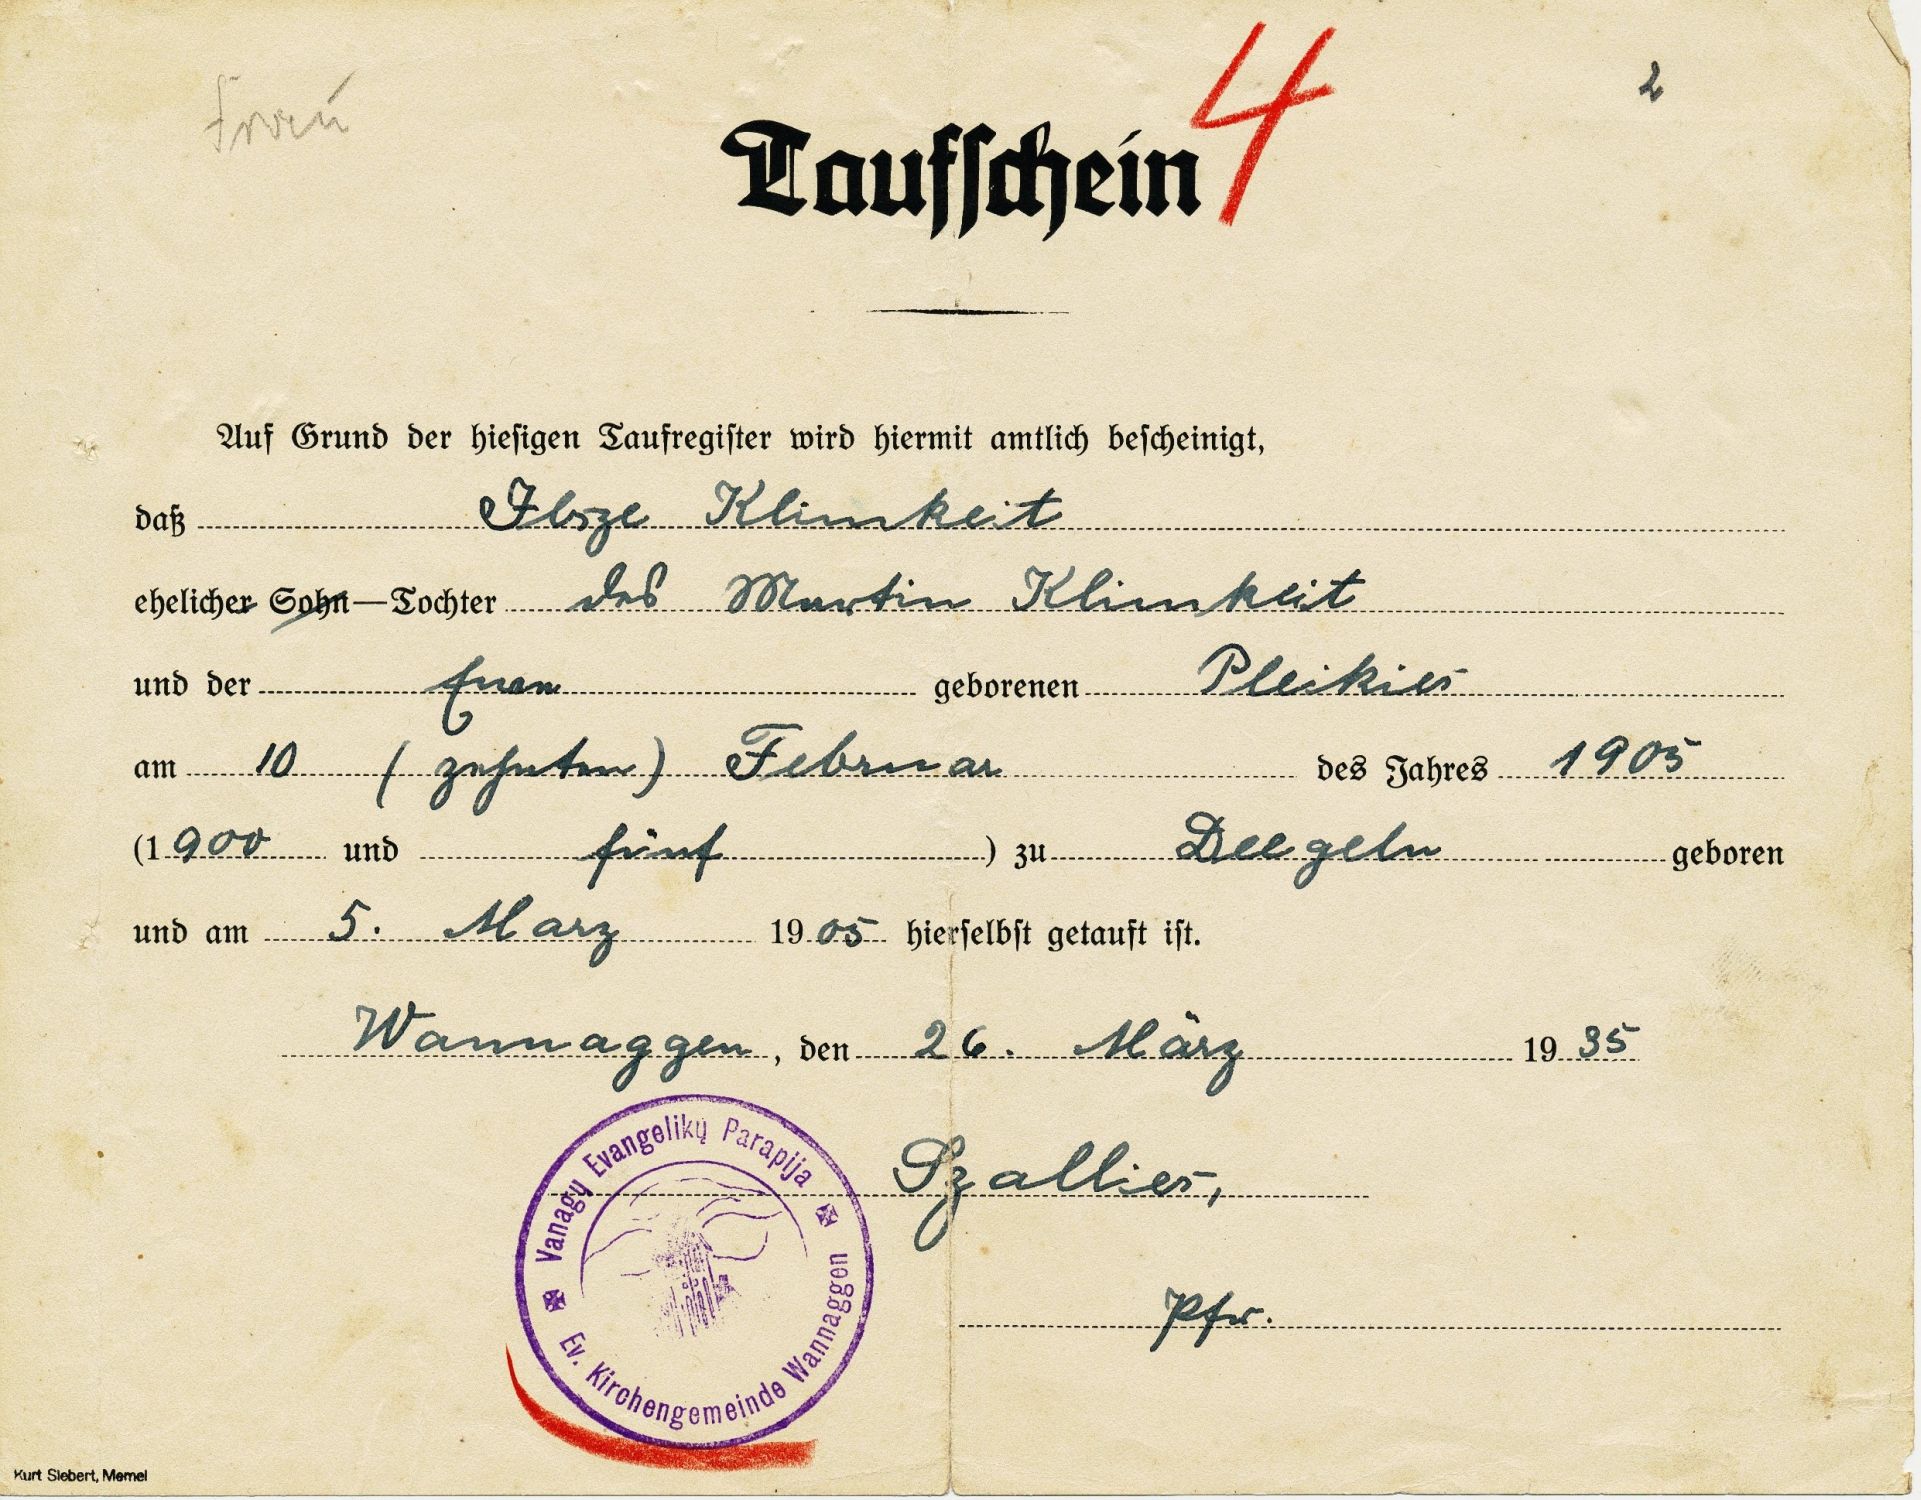 Frau
4
2
Taufschein
Auf Grund der hiesigen Taufregister wird hiermit amtlich bescheinigt,
daß Ilsze Klimkeit
ehelicher Sohn—Tochter des Martin Klimkeit
und der geborenen Pleikies
am 10 (zehnten) Februar des Jahres 1905
(1900 und fünf) zu Deegeln geboren
und am 5. Marz 1905 hierselbst getauft ist.
Wannaggen, den 26. März 1935
Szallies,
Pfr.
Vanagų Evangelikų Parapija
Ev. Kirchengemeinde Wannaggen
Kurt Siebert, Memel